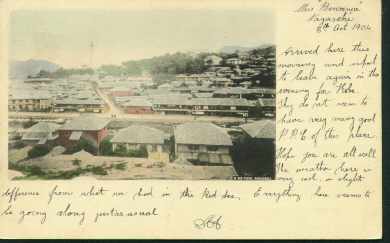 Miss
Nagasaki
6th Oct 1904
Arrived here this
morning and expect
to leave again in the
evening for Kobe
they do not seem to
have very many good
P.P.C of this place
Hope you are all well
the weather here is
very cool, a slight
difference from what we had in the Red Sea. Everything here seems to
be going along just as usual